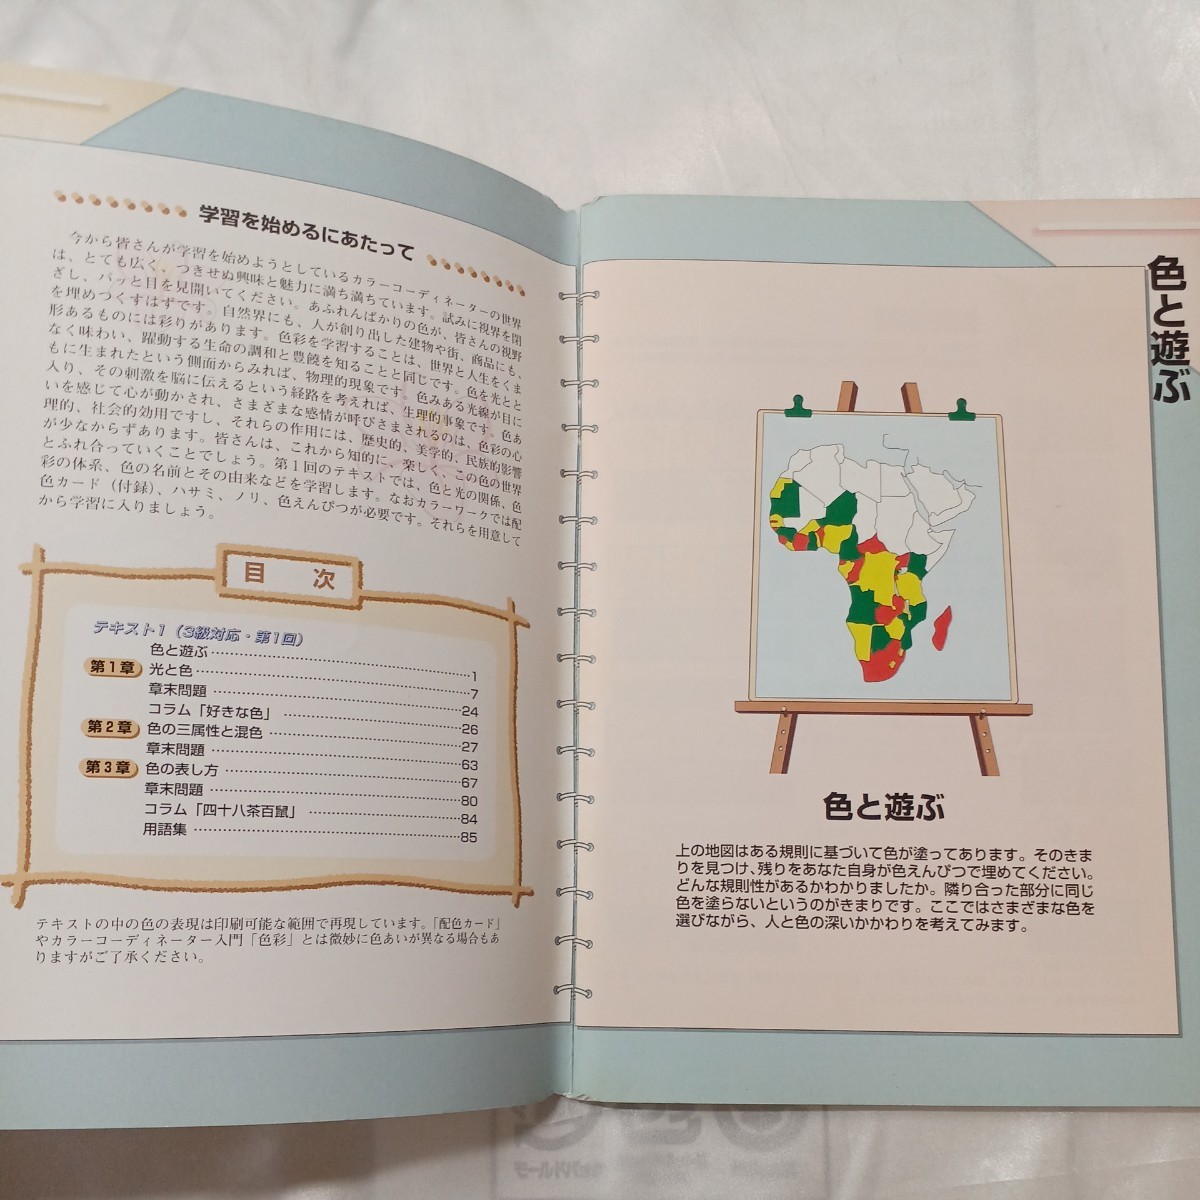 学習を始めるにあたって
今から皆さんが学習を始めようとしているカラーコーディネーターの世界
は、とても広く、つきせぬ興味と魅力に満ち満ちています。試みに視界を閉
ざし、パッと目を見開いてください。あふれんばかりの色が、皆さんの視野
を埋めつくすはずです。自然界にも、人が創り出した建物や街、商品にも、
形あるものには彩りがあります。色彩を学習することは、世界と人生をくま
なく味わい、躍動する生命の調和と豊饒を知ることと同じです。色を光とと
もに生まれたという側面からみれば、物理的現象です。色みある光線が目に
入り、その刺激を脳に伝えるという経路を考えれば、生理的事象です。色あ
いを感じて心が動かされ、さまざまな感情が呼びさまされるのは、色彩の心
理的、社会的効用ですし、それらの作用には、歴史的、美学的、民族的影響
が少なからずあります。皆さんは、これから知的に、楽しく、この色の世界
とふれ合っていくことでしょう。第1回のテキストでは、色と光の関係、色
彩の体系、色の名前とその由来などを学習します。なおカラーワークでは配
色カード（付録）、ハサミ、ノリ、色えんぴつが必要です。それらを用意して
から学習に入りましょう。
目 次
テキスト1（3級対応・第1回）
色と遊ぶ……1
第1章 光と色……7
章末問題……24
コラム「好きな色」……26
第2章 色の三属性と混色……27
章末問題……63
第3章 色の表し方……67
章末問題……80
コラム「四十八茶百鼠」……84
用語集……85
テキストの中の色の表現は印刷可能な範囲で再現しています。「配色カード」
やカラーコーディネーター入門「色彩」とは微妙に色あいが異なる場合もあ
りますがご了承ください。
色と遊ぶ
色と遊ぶ
上の地図はある規則に基づいて色が塗ってあります。そのきま
りを見つけ、残りをあなた自身が色えんぴつで埋めてください。
どんな規則性があるかわかりましたか。隣り合った部分に同じ
色を塗らないというのがきまりです。ここではさまざまな色を
選びながら、人と色の深いかかわりを考えてみます。